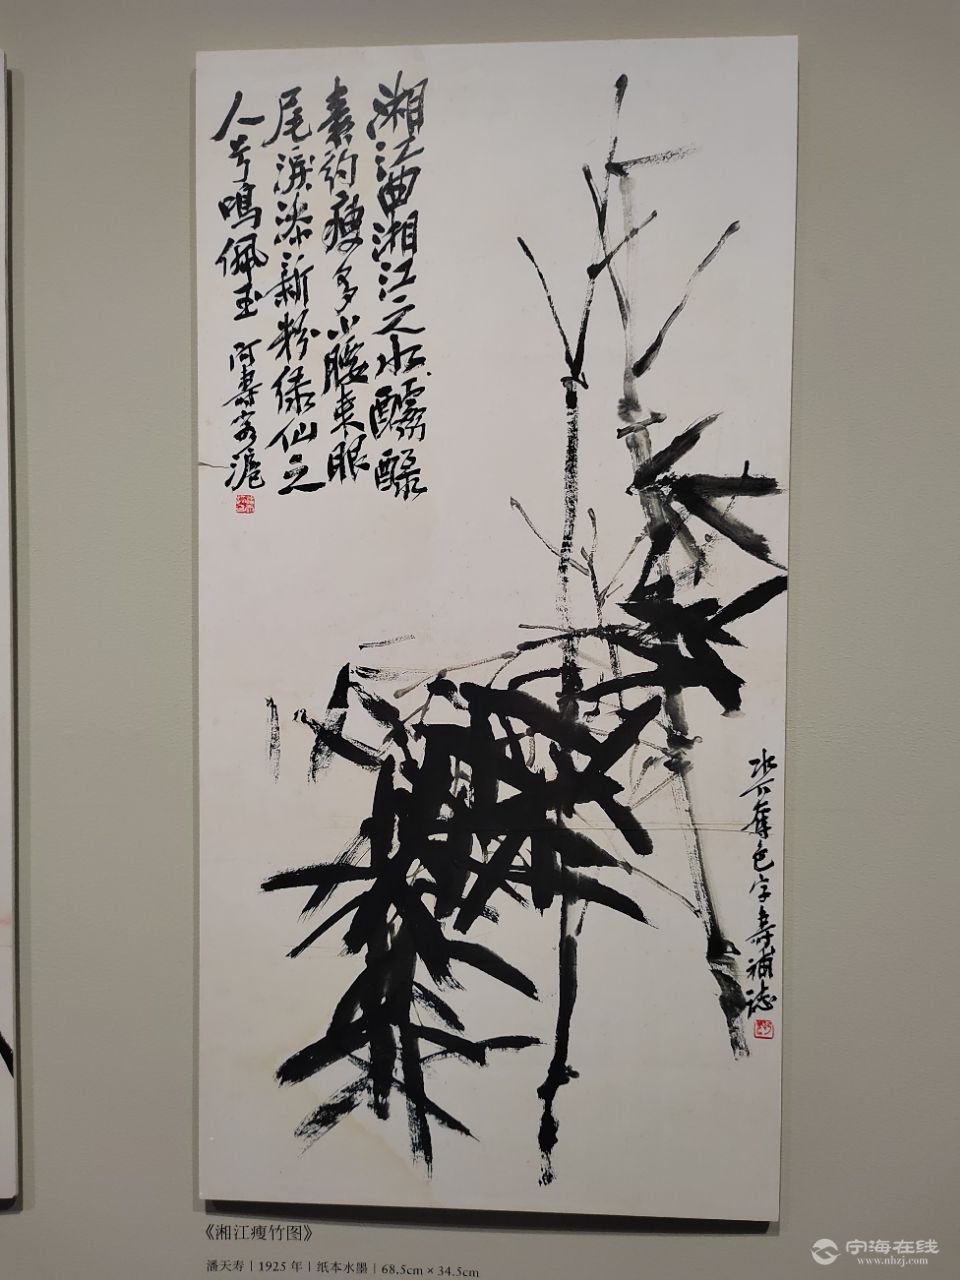 湘江曲湘江之水醽醁
素约瘦多小腰束眼
尾淚添新粉绿仙之
人兮鳴佩玉 阿壽客滬
水下奪色字壽補誌
《湘江瘦竹图》
潘天寿 | 1925 年 | 纸本水墨 | 68.5cm × 34.5cm
宁海在线
www.nhzj.com